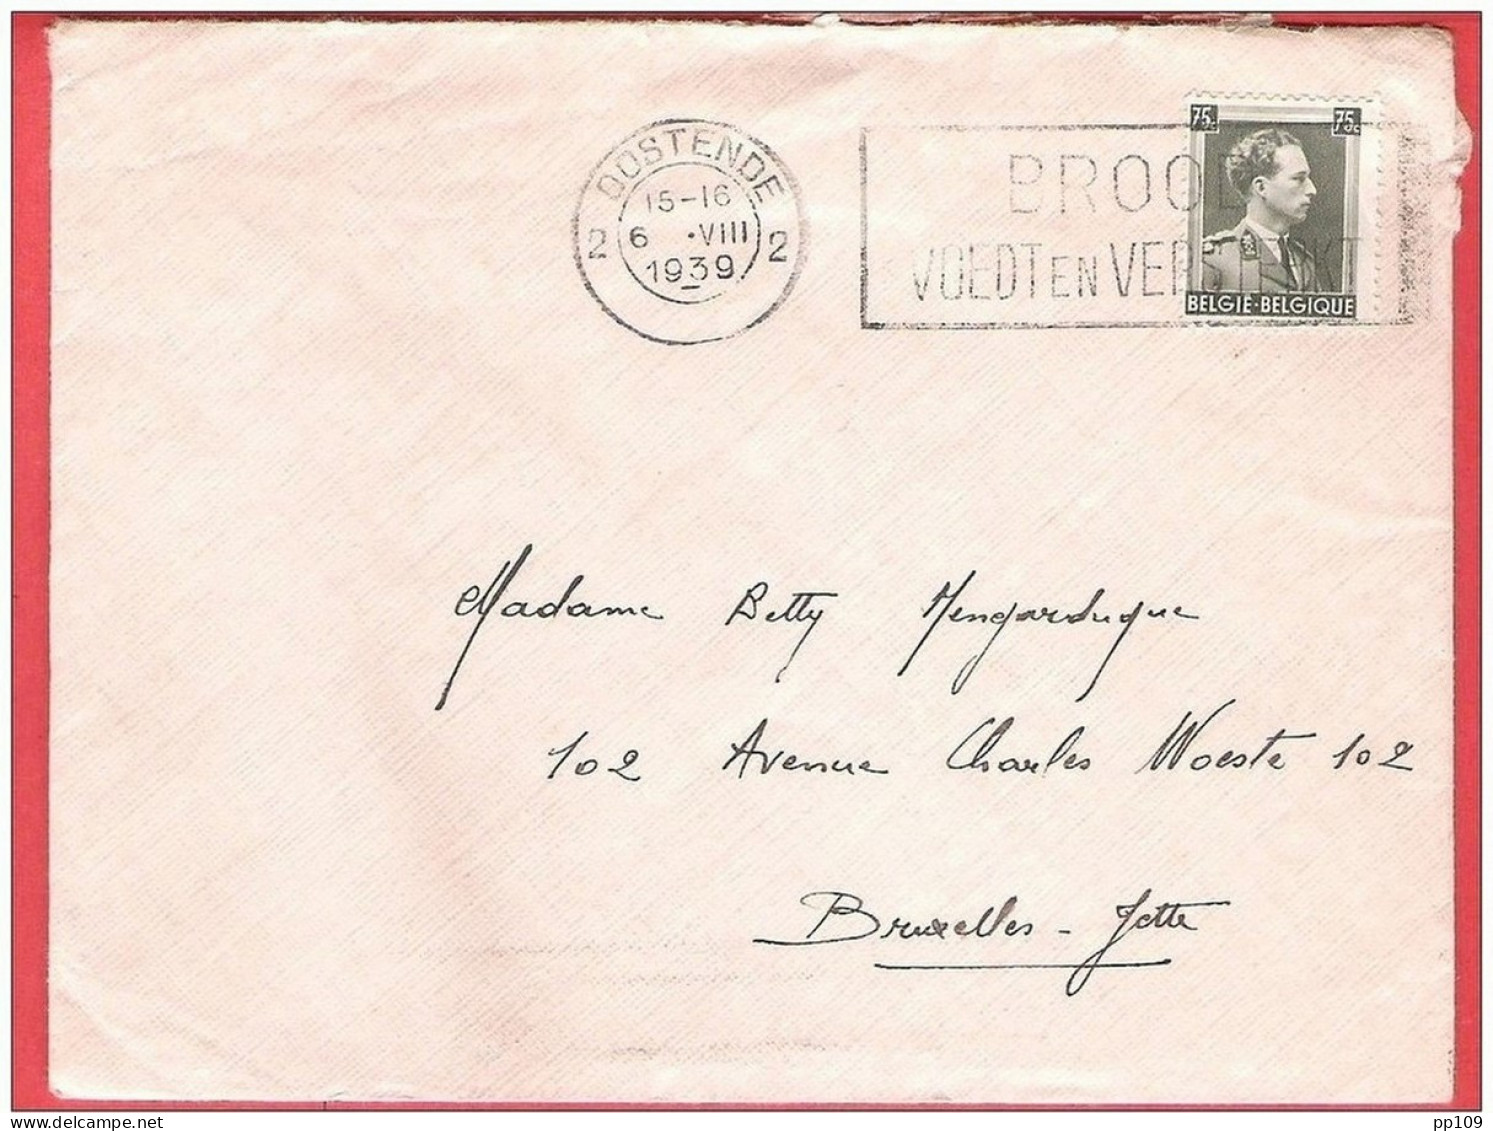 OOSTENDE
15-16
2 6 •VIII 2
1939
BROOD
VOEDT EN VERSTERKT
75c 75c
BELGIE-BELGIQUE
Madame Betty Mengarduque
102 Avenue Charles Woeste 102
Bruxelles - Jette
pp109